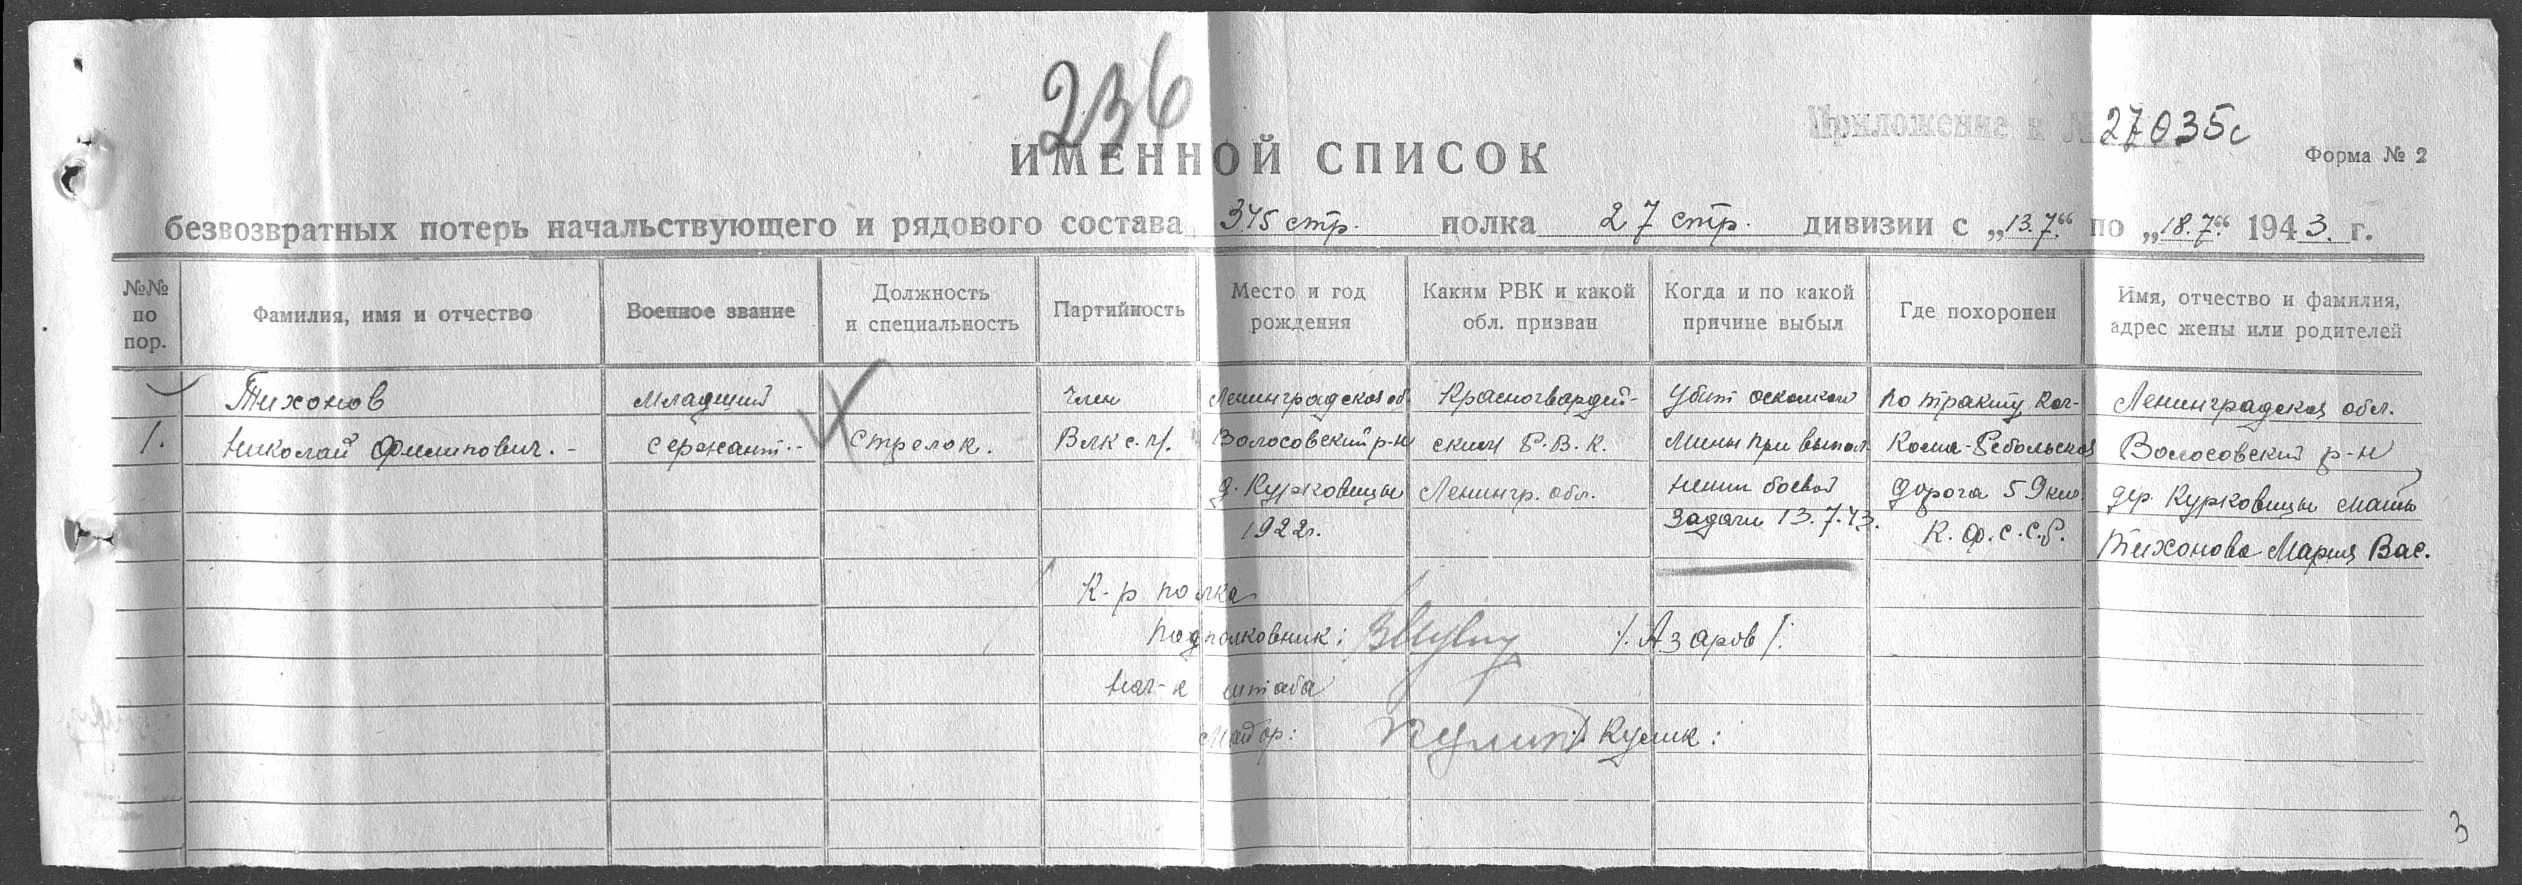 236
Приложение к № 27035с
ИМЕННОЙ СПИСОК
Форма № 2
безвозвратных потерь начальствующего и рядового состава 345 стр. полка 27 стр. дивизии с „13.7.“ по „18.7.“ 1943. г.
№№ по пор.
Фамилия, имя и отчество
Военное звание
Должность и специальность
Партийность
Место и год рождения
Каким РВК и какой обл. призван
Когда и по какой причине выбыл
Где похоронен
Имя, отчество и фамилия, адрес жены или родителей
Тихонов младший член Ленинградская об Красногвардей- Убит осколком по тракту Коч-
Ленинградская обл.
1. Николай Филипович. - сержант.- Стрелок. ВЛКС.М. Волосовский р-н ским Р.В.К. мины при выпол- Кома-Ребольская Волосовский р-н
д. Курковицы Ленингр. обл. нении боевой дорога 59 км. дер. Курковицы мать
1922г. задачи 13.7.43. К.Ф.С.С.Р. Тихонова Мария Вас.
К-р полка
подполковник: /. Азаров /.
нач-к штаба
майор: /. Кулик :
3